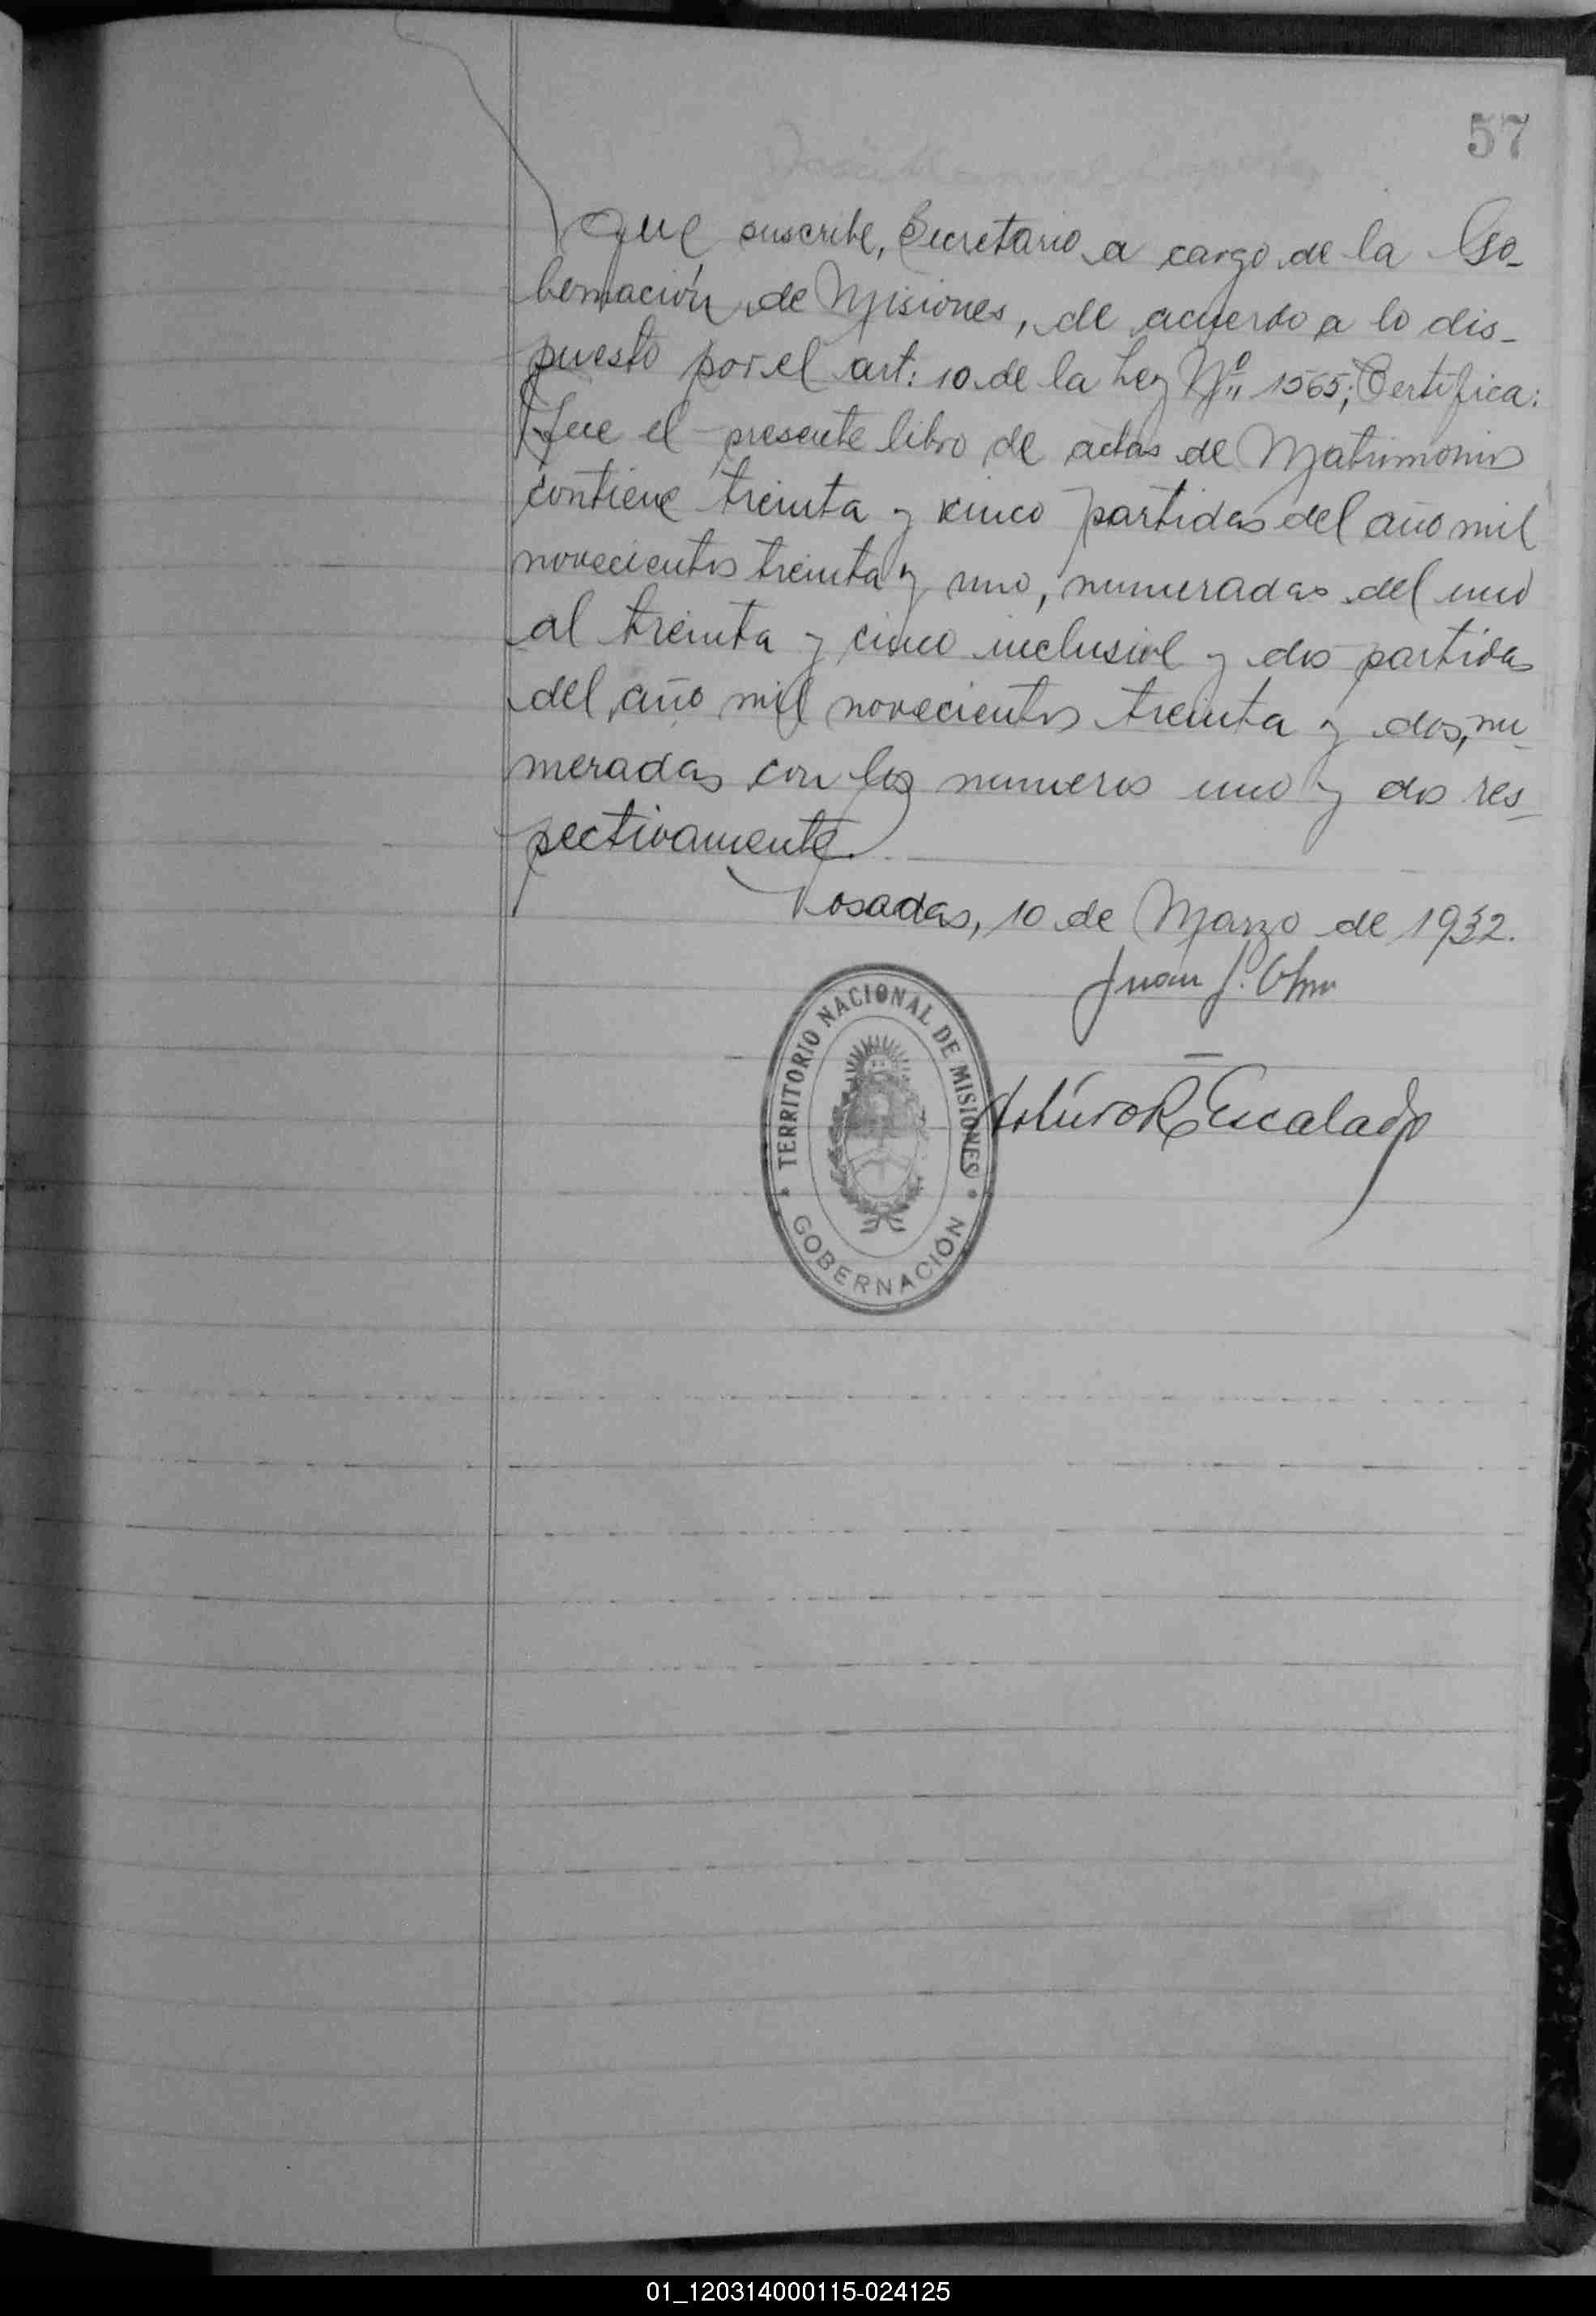 57
Que suscribe, Secretario a cargo de la Go-
bernación de Misiones, de acuerdo a lo dis-
puesto por el art: 10 de la Ley Nº 1565; Certifica:
Que el presente libro de actas de Matrimonios
contiene treinta y cinco partidas del año mil
novecientos treinta y uno, numeradas del uno
al treinta y cinco inclusive y dos partidas
del año mil novecientos treinta y dos, nu-
meradas con los numeros uno y dos res-
pectivamente.
Posadas, 10 de Marzo de 1932.
Juan J.
Arturo R Escalada
TERRITORIO NACIONAL DE MISIONES
GOBERNACIÓN
01_120314000115-024125